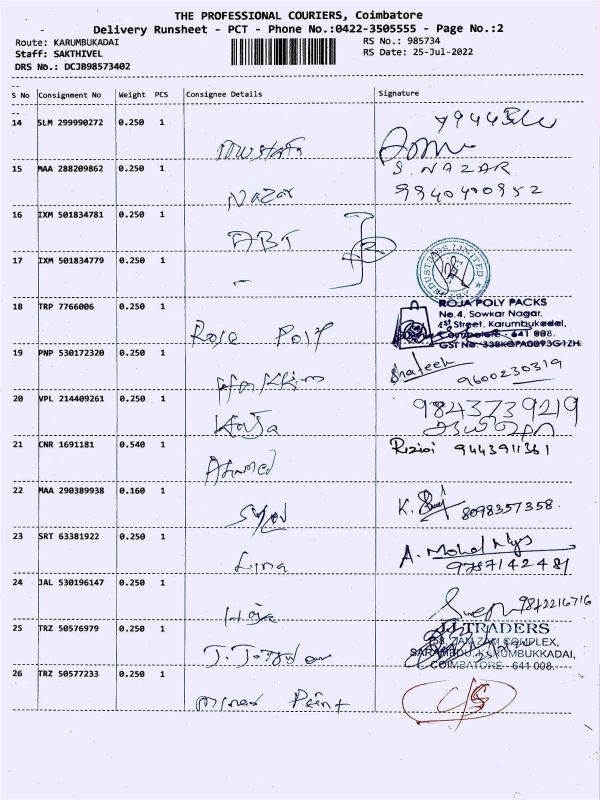 THE PROFESSIONAL COURIERS, Coimbatore
Delivery Runsheet - PCT - Phone No.:0422-3505555 - Page No.:2
Route: KARUMBUKADAI
RS No.: 985734
Staff: SAKTHIVEL
RS Date: 25-Jul-2022
DRS No.: DCJB98573402
--
S No Consignment No Weight PCS Consignee Details Signature
--
14 SLM 299990272 0.250 1
Mustafa
15 MAA 288209862 0.250 1 S. NAZAR
Nazar 9940400952
16 IXM 501834781 0.250 1
ABT
17 IXM 501834779 0.250 1
-
18 TRP 7766006 0.250 1 ROJA POLY PACKS
No.4, Sowkar Nagar,
1st Street, Karumbukadai,
Roja Poly Coimbatore - 641 008.
19 PNP 530172320 0.250 1
Shafeek 9600230319
Hakkim
20 VPL 214409261 0.250 1 98437 39219
Khaja
21 CNR 1691181 0.540 1 Rizioi 9443911361
Ahmed
22 MAA 290389938 0.160 1 K. 8098357358
Syed
23 SRT 63381922 0.250 1 A. Mohd
9787142481
Lima
24 JAL 530196147 0.250 1 9842216716
Hoja
25 TRZ 50576979 0.250 1 JJ TRADERS
58, ZAM ZAM COMPLEX,
SARAMEDU, KARUMBUKKADAI,
COIMBATORE - 641 008.
26 TRZ 50577233 0.250 1
Paint